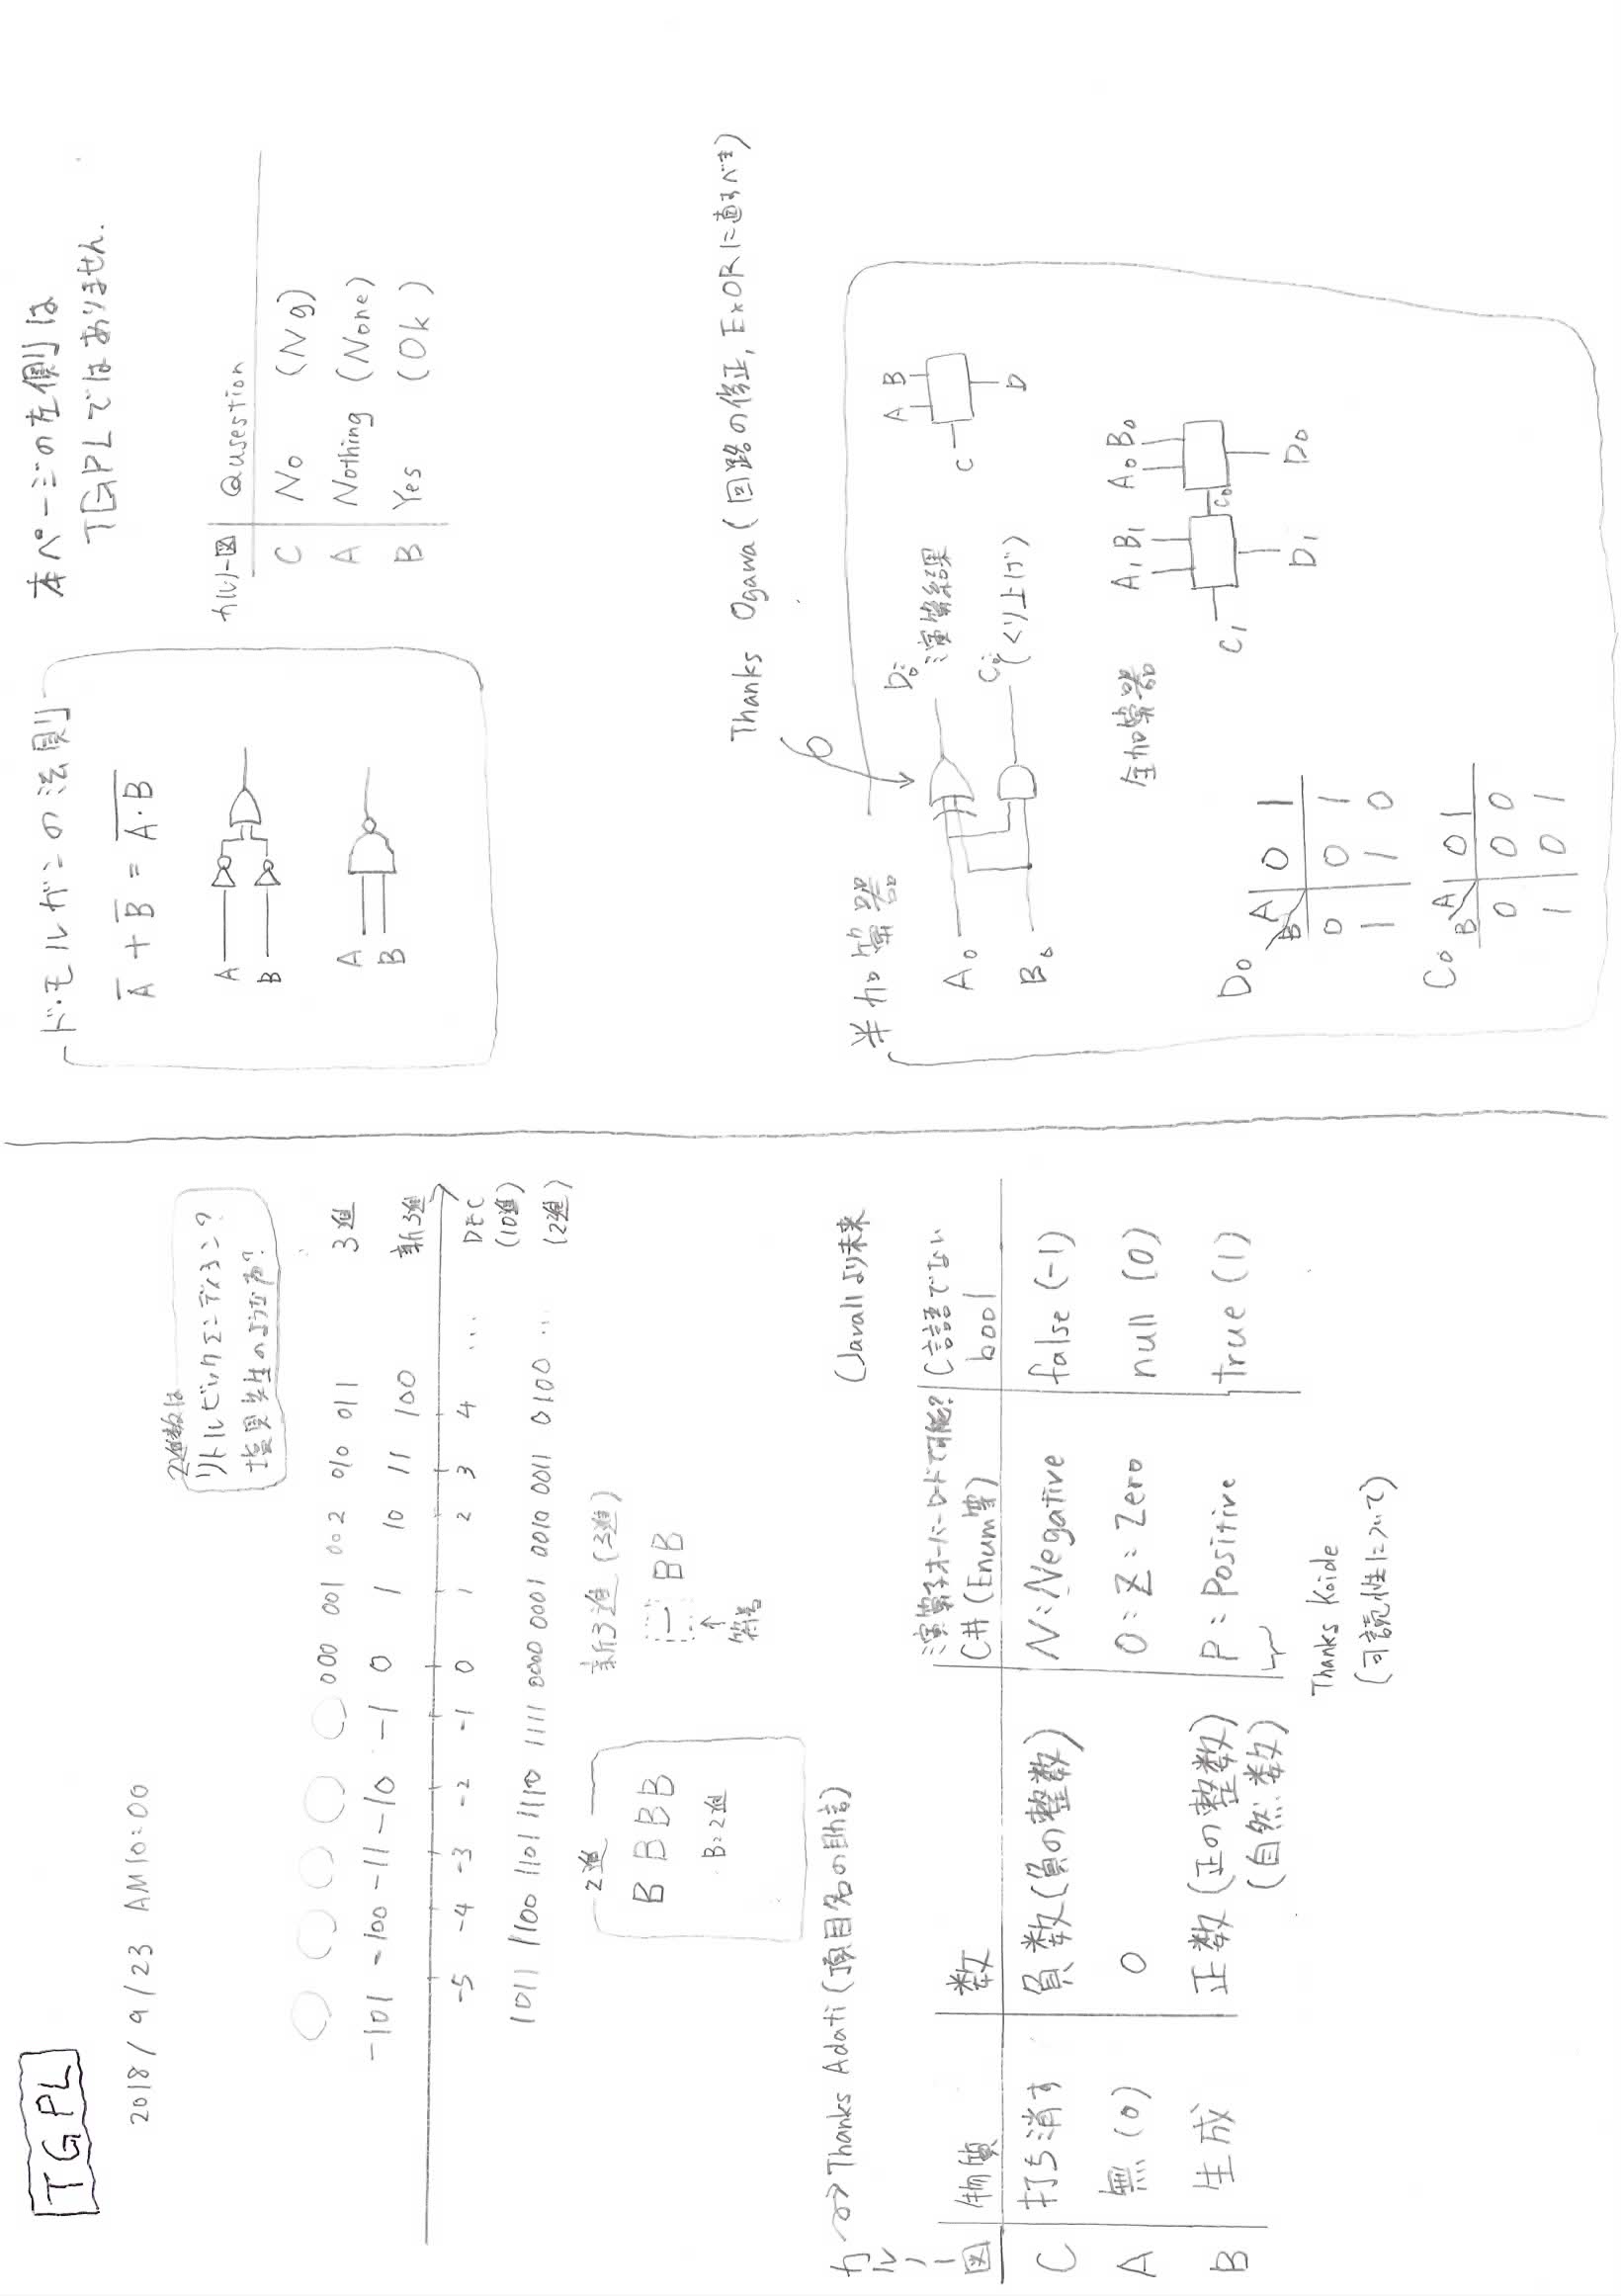 TGPL
2018/9/23 AM10:00
2進数は
リトルビックエンディアン?
塩見先生のような为?
000 001 002 010 011 3進
-101 -100 -11 -10 -1 0 1 10 11 100 新3進
-5 -4 -3 -2 -1 0 1 2 3 4 ... DEC
(10進)
1011 1100 1101 1110 1111 0000 0001 0010 0011 0100 ... (2進)
2進
B BBB
B=2進
新3進(3進)
- BB
↑
符号
Thanks Adati(項目名の助言)
(Javaより未来
演算子オーバーロードで可能?
カルノー図 物質 数 C#(Enum等) C言語でない
bool
C 打ち消す 負数(負の整数) N:Negative false (-1)
A 無(0) 0 0:Z:Zero null (0)
B 生成 正数(正の整数) P:Positive true (1)
(自然数)
Thanks Koide
(可読性について)
ド・モルガンの法則
A̅ + B̅ = A̅·̅B̅
A
B
A
B
本ページの左側は
TGPLではありません.
カルノー図 Qusestion
C No (Ng)
A Nothing (None)
B Yes (Ok)
Thanks Ogawa(回路の修正, ExORに直すべき)
半加算器
A0 D0:
演算結果
B0 C0:
(くり上げ)
A B
C
D
全加算器
A1 B1 A0 B0
C1 C0
D1 D0
D0
B A 0 1
0 0 1
1 1 0
C0
B A 0 1
0 0 0
1 0 1